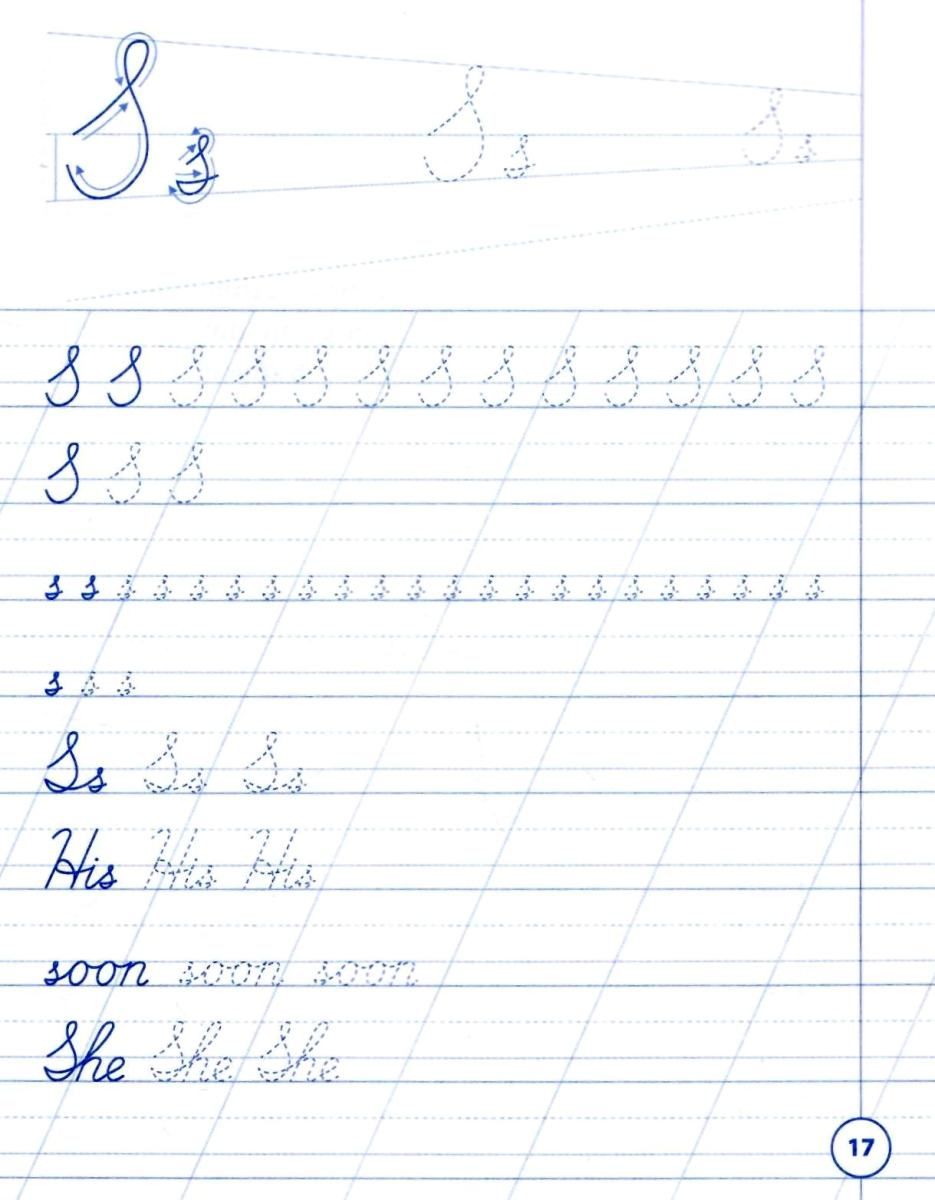 S s S s S s
S S S S S S S S S S S S S
S S S
s s s s s s s s s s s s s s s s s s s s s s
s s s
Ss Ss Ss
His His His
soon soon soon
She She She
17